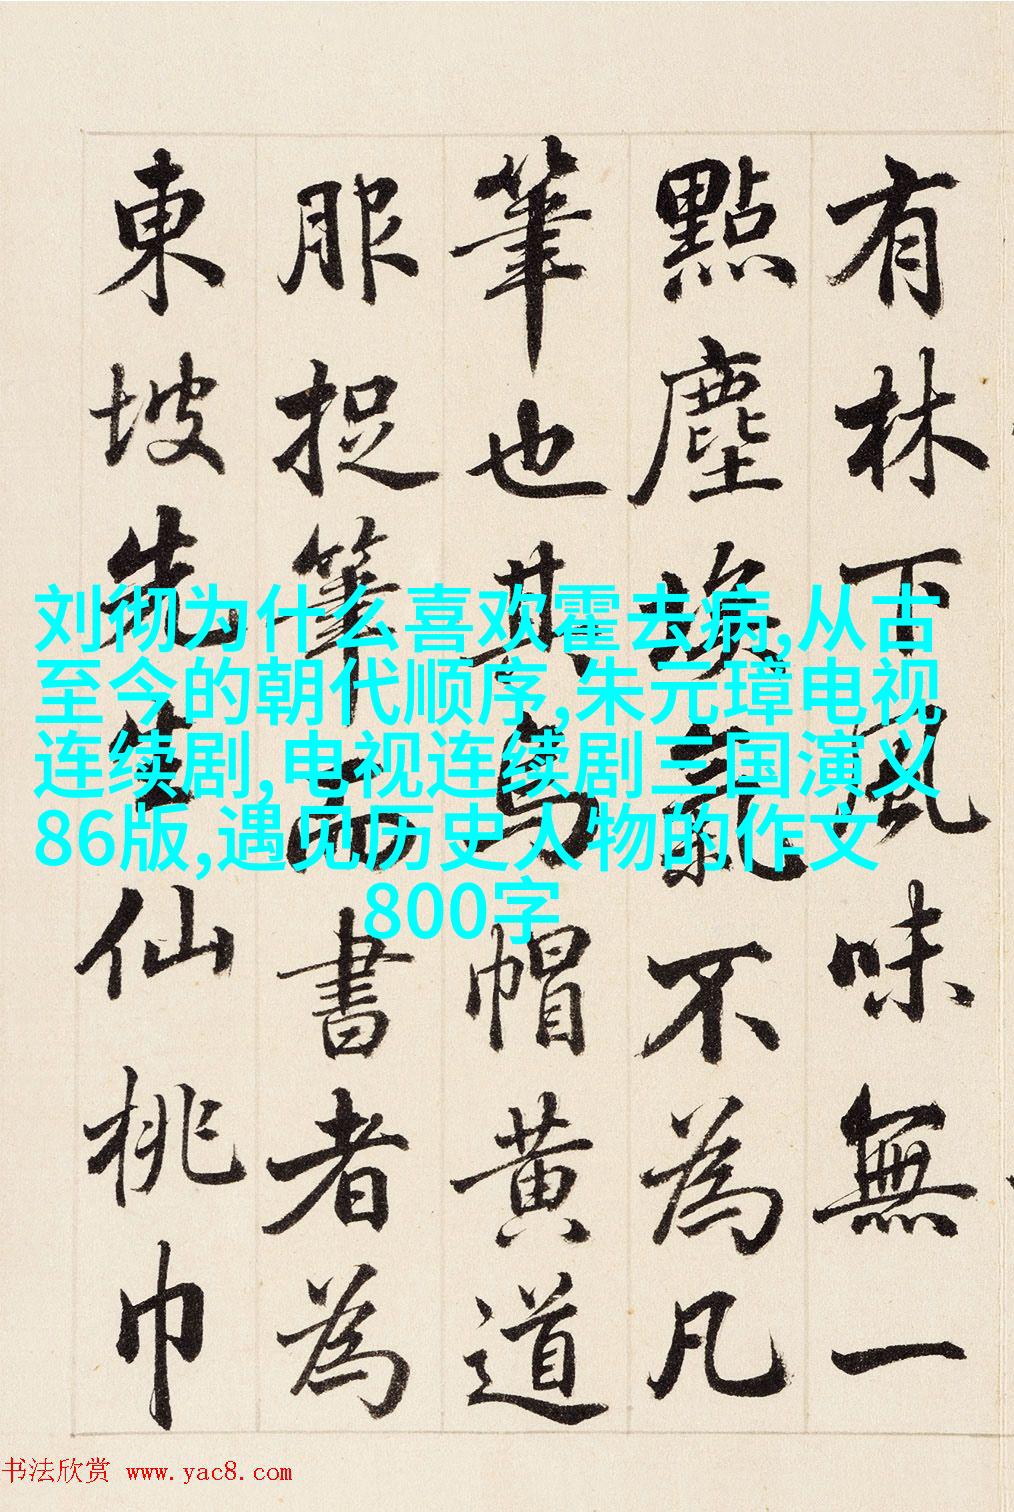 有林下風味無一
點塵埃氣不為凡
筆也其烏帽黃道
服捉筆而書者為
東坡先生仙桃巾
刘彻为什么喜欢霍去病,从古
至今的朝代顺序,朱元璋电视
连续剧,电视连续剧三国演义
86版,遇见历史人物的作文
800字
书法欣赏 www.yac8.com